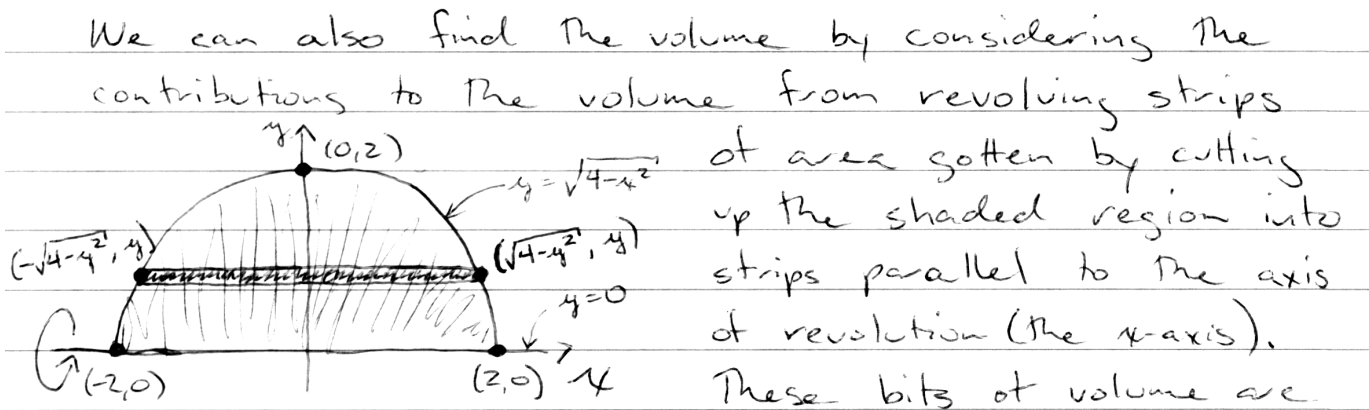 We can also find the volume by considering the
contributions to the volume from revolving strips
of area gotten by cutting
up the shaded region into
strips parallel to the axis
of revolution (the x-axis).
These bits of volume are
y
(0,2)
y=√4-x²
(-√4-y², y)
(√4-y², y)
y=0
(-2,0)
(2,0)
x